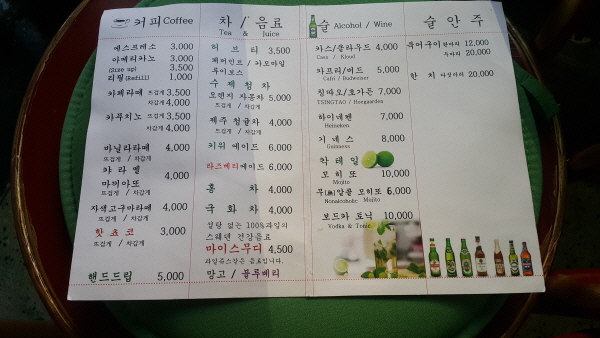 커피 Coffee
에스프레소 3,000
아메리카노 3,000
(Size up) 3,500
리필(Refill) 1,000
카페라떼 뜨겁게 3,500
차갑게 4,000
카푸치노 뜨겁게 3,500
차갑게 4,000
바닐라라떼 4,000
뜨겁게 / 차갑게
캬라멜
마끼아또 4,000
뜨겁게 / 차갑게
자색고구마라떼 4,000
뜨겁게 / 차갑게
핫쵸코 3,000
뜨겁게 / 차갑게
핸드드립 5,000
차 / 음료
Tea & Juice
허브티 3,500
페퍼민트 / 카모마일
루이보스
수제청차
오렌지 자몽차 5,000
뜨겁게 / 차갑게
제주 청귤차 4,000
뜨겁게 / 차갑게
키위 에이드 6,000
라즈베리에이드 6,000
홍차 4,000
국화차 4,000
설탕 없는 100%과일의
스웨덴 건강음료
마이스무디 4,500
과일쥬스같은 음료입니다.
망고 / 블루베리
술 Alcohol / Wine
카스/클라우드 4,000
Cass / Kloud
카프리/버드 5,000
Cafri / Budweiser
칭따오/호가든 7,000
TSINGTAO / Hoegaarden
하이네켄 7,000
Heineken
기네스 8,000
Guinness
칵테일
모히또 10,000
Mojito
무(無)알콜 모히또 6,000
Nonalcoholic Mojito
보드카 토닉 10,000
Vodka & Tonic
술안주
북어구이 한마리 12,000
두마리 20,000
한치 나섯마리 20,000